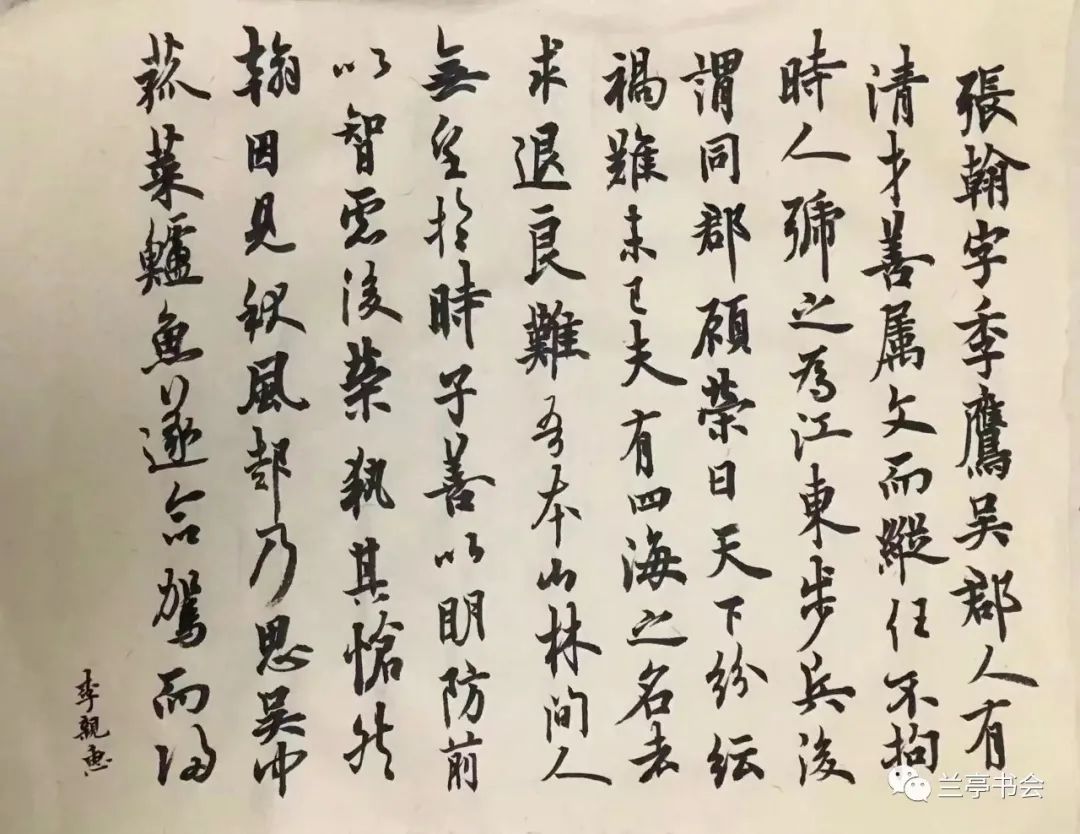 張翰字季鷹吳郡人有
清才善属文而縱任不拘
時人號之為江東步兵後
謂同郡顧榮曰天下紛紜
禍難未已夫有四海之名者
求退良難吾本山林間人
無望於時子善以明防前
以智慮後榮執其愴然
翰因見秋風起乃思吳中
菰菜鱸魚遂命駕而歸
李親惠
兰亭书会